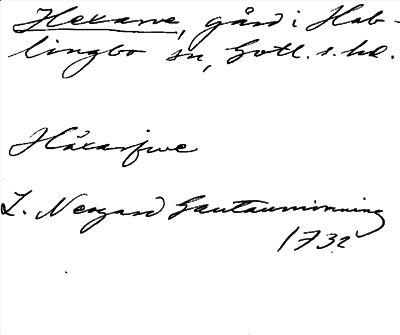 Hexarve, gård i Hab-
lingbo sn, Gotl. s. hd.
Häxarfwe
L. Nergard Gautauminning
1732